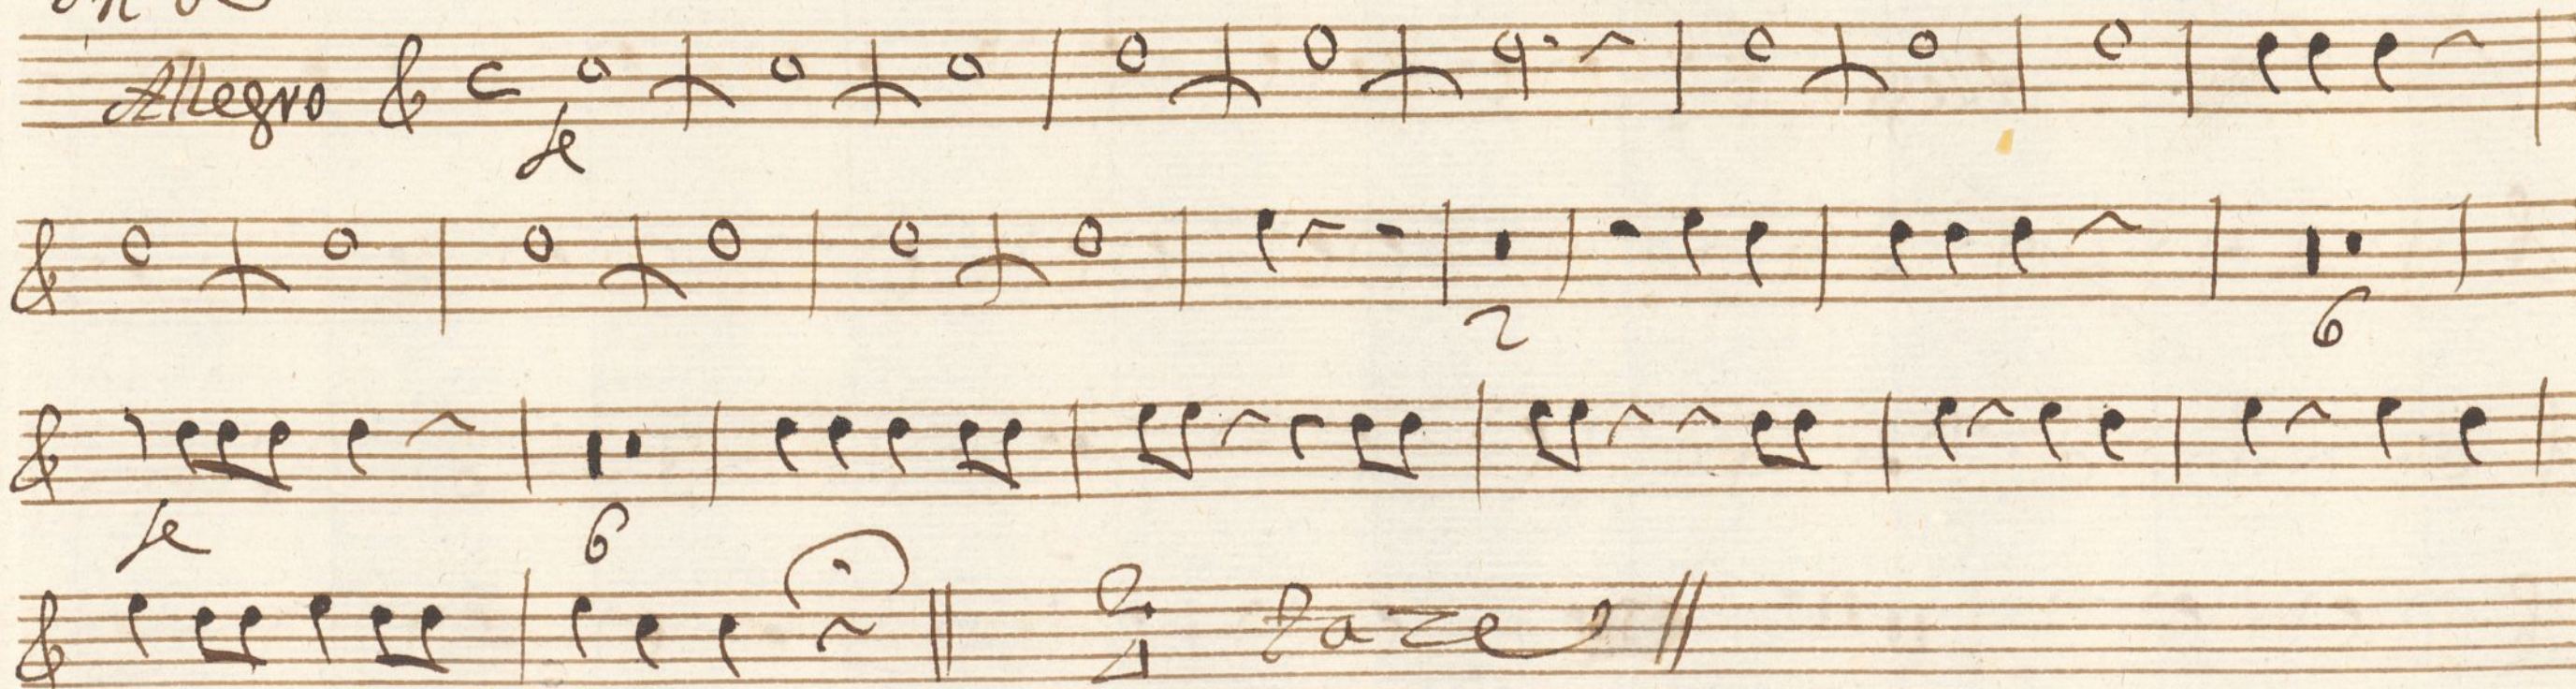 Allegro
fe
2
6
fe
6
2/4 Taze